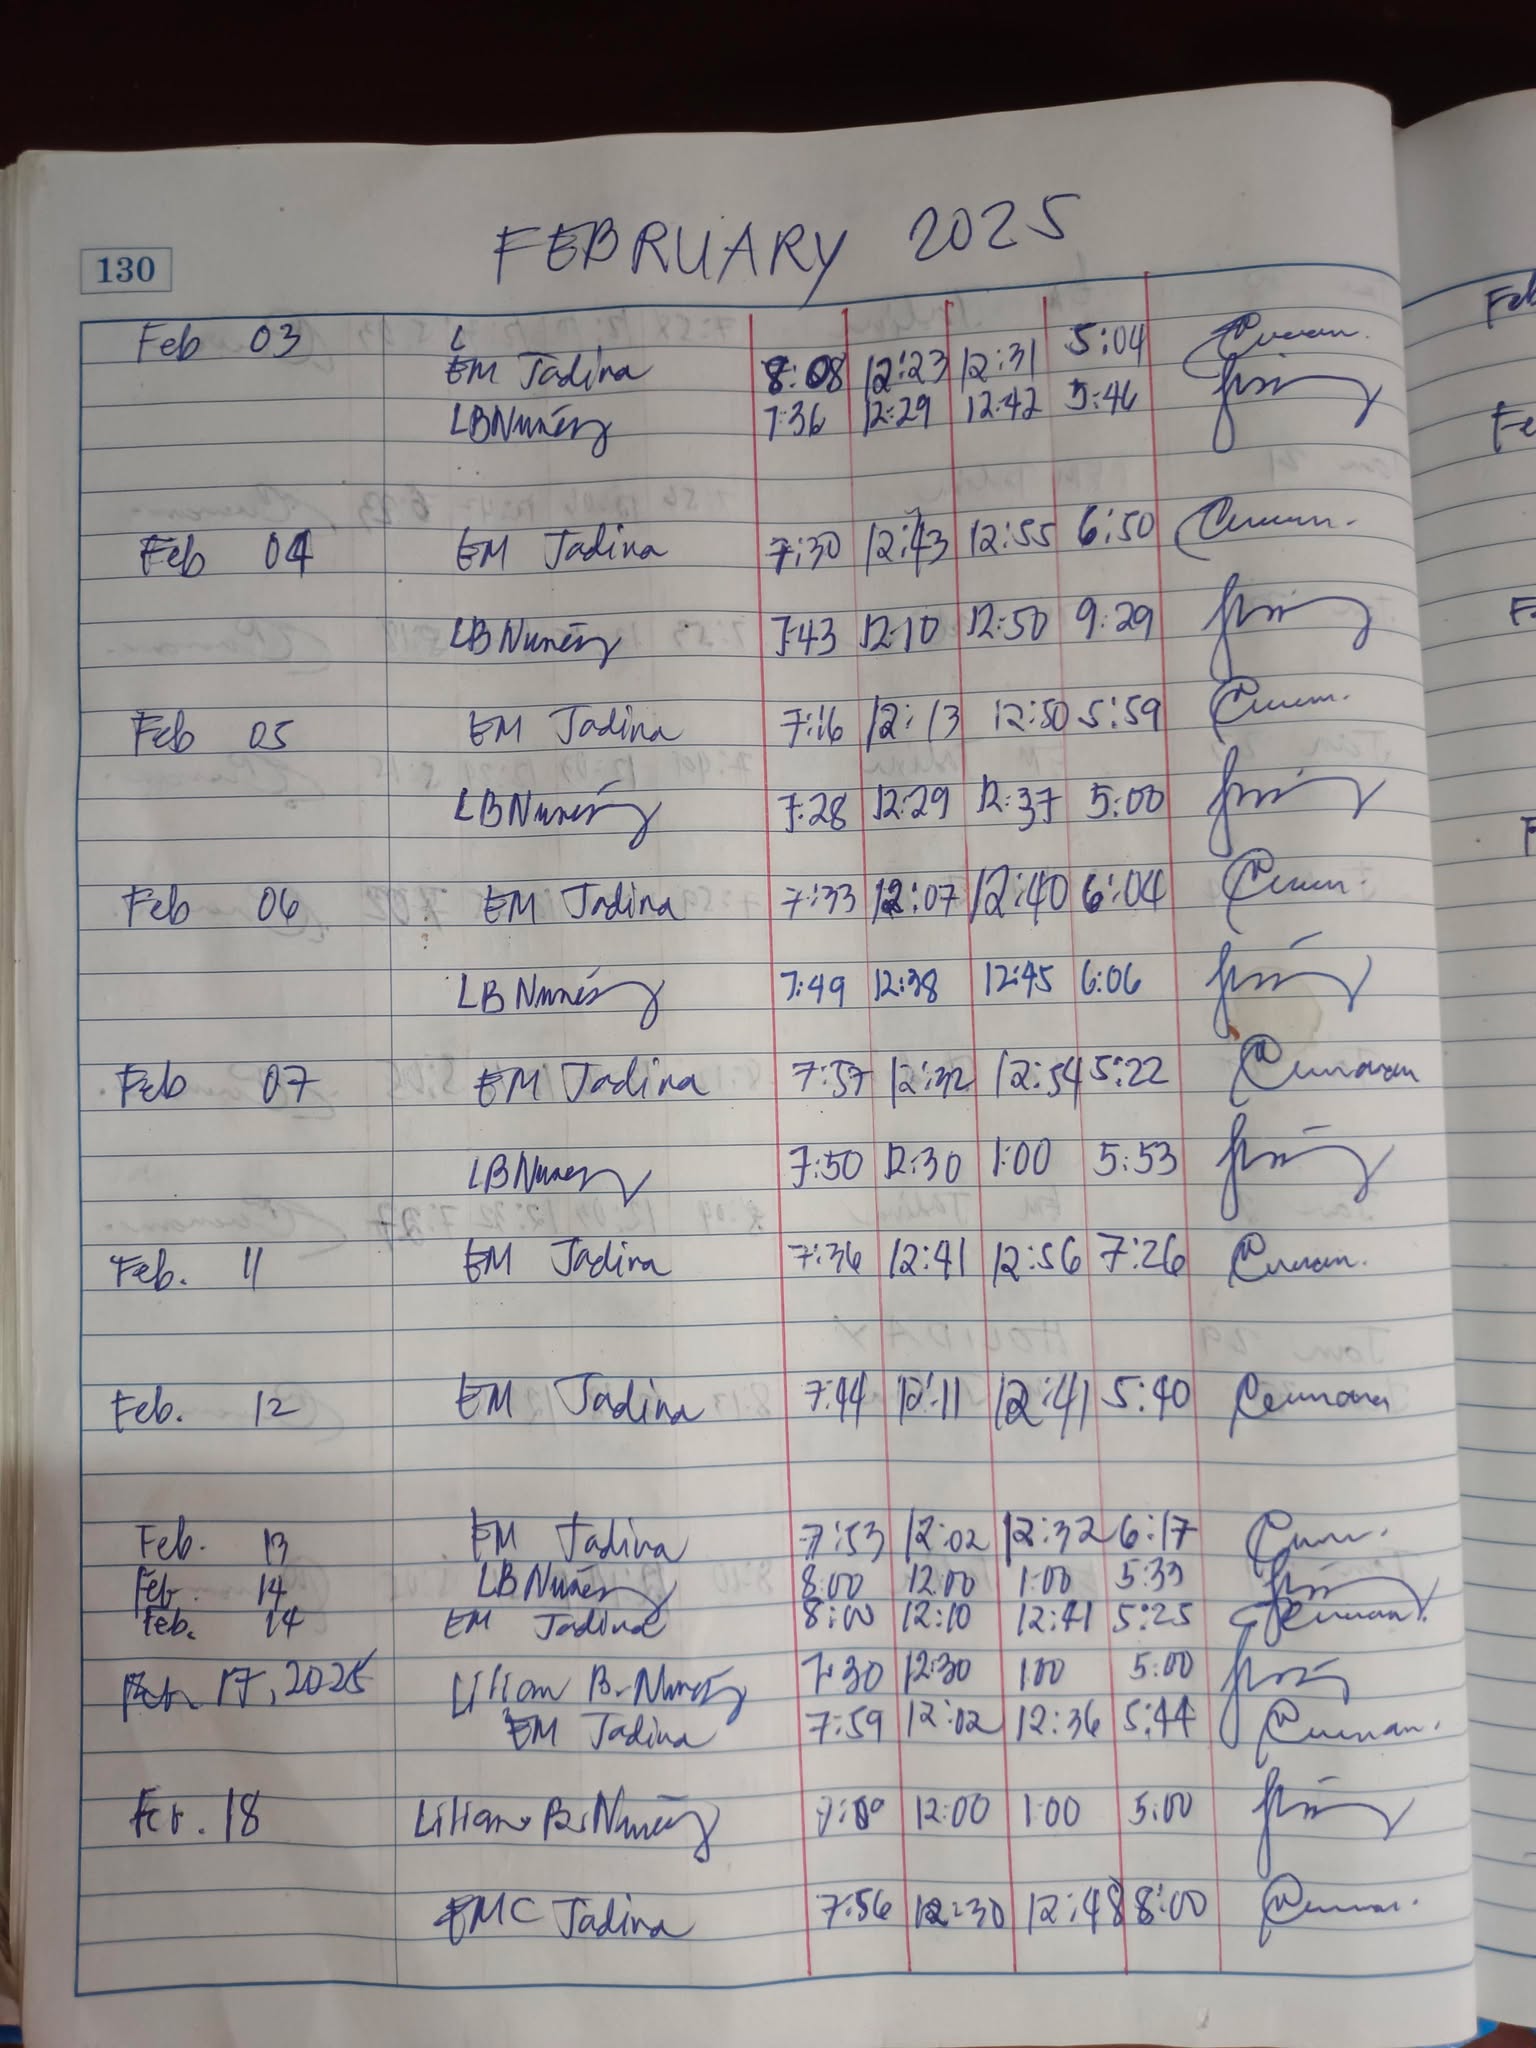 FEBRUARY 2025
130
Feb 03 L
EM Jadina 8:08 12:23 12:31 5:04
LBNuñez 7:36 12:29 12:42 5:46
Feb 04 EM Jadina 7:30 12:43 12:55 6:50
LBNuñez 7:43 12:10 12:50 9:29
Feb 05 EM Jadina 7:16 12:13 12:50 5:59
LBNuñez 7:28 12:29 12:37 5:00
Feb 06 EM Jadina 7:33 12:07 12:40 6:04
LBNuñez 7:49 12:38 12:45 6:06
Feb 07 EM Jadina 7:57 12:32 12:54 5:22
LBNuñez 7:50 12:30 1:00 5:53
Feb. 11 EM Jadina 7:36 12:41 12:56 7:26
Feb. 12 EM Jadina 7:44 12:11 12:41 5:40
Feb. 13 EM Jadina 7:53 12:02 12:32 6:17
Feb. 14 LBNuñez 8:00 12:00 1:00 5:33
Feb. 14 EM Jadina 8:00 12:10 12:41 5:25
Feb 17, 2025 Lilian B. Nuñez 7:30 12:30 1:00 5:00
EM Jadina 7:59 12:02 12:36 5:44
Feb. 18 Lilian B. Nuñez 12:00 1:00 5:00
EMC Jadina 7:56 12:30 12:48 8:00